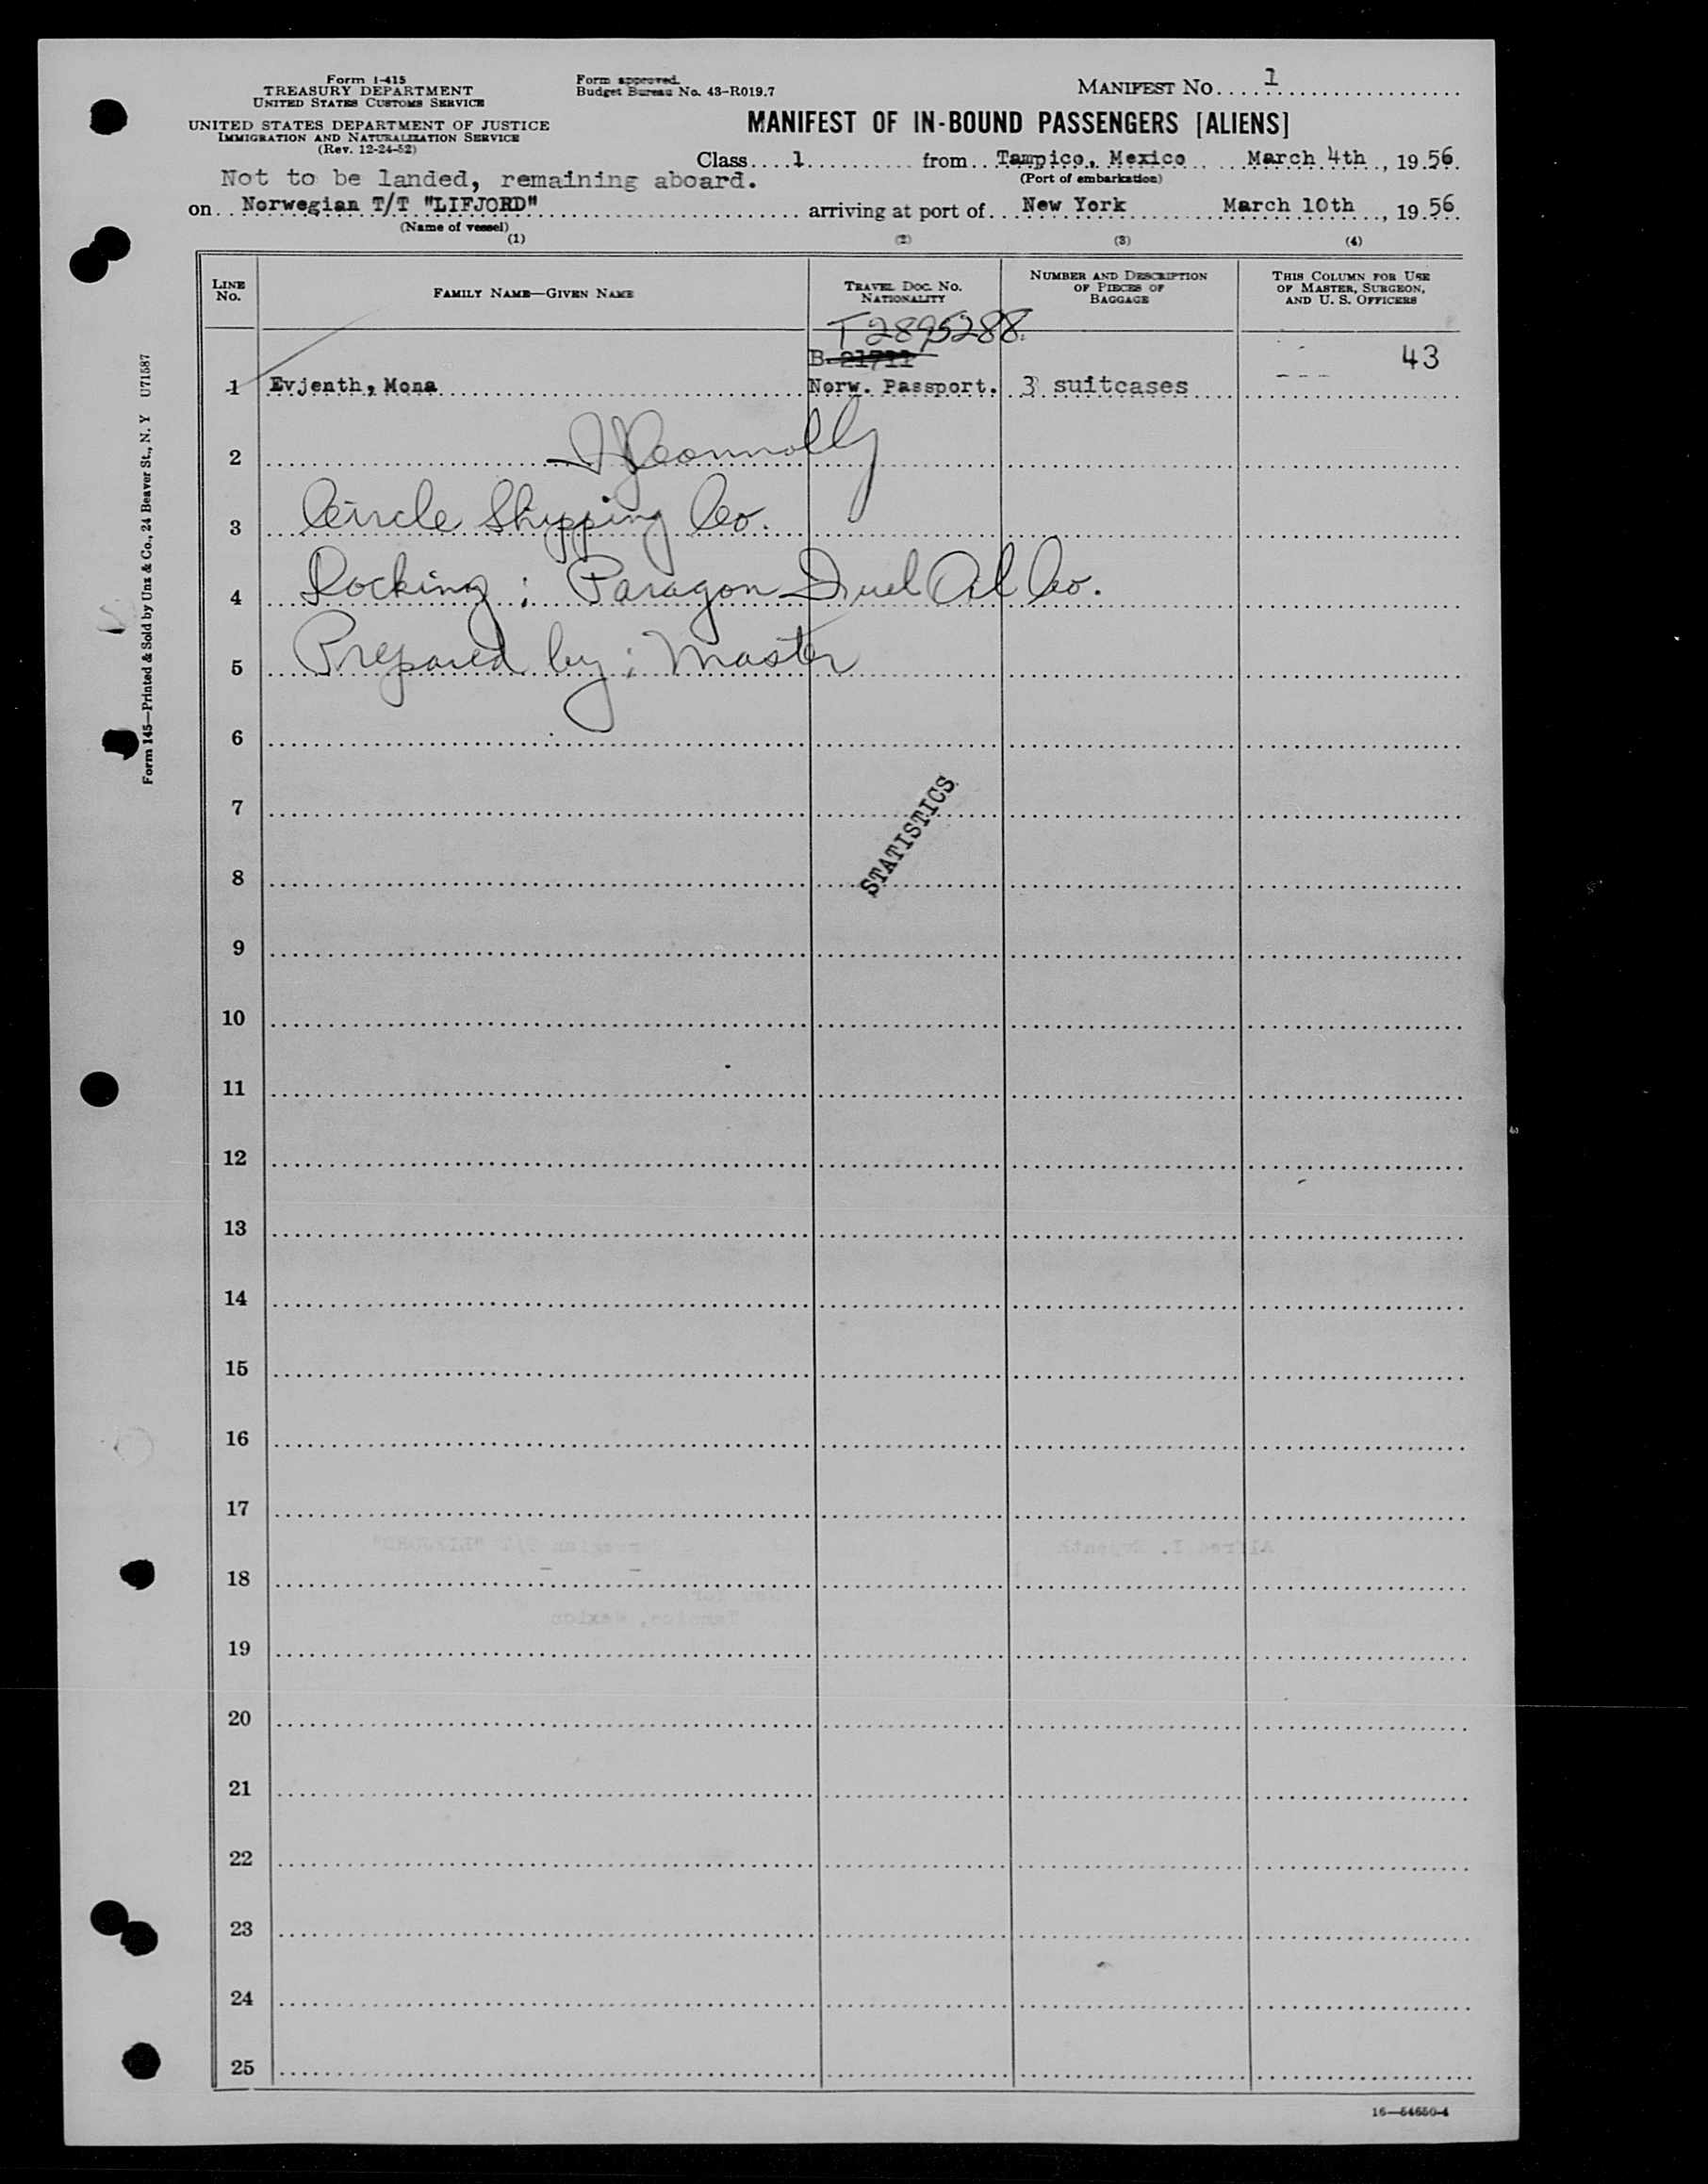 Form I-415
TREASURY DEPARTMENT
UNITED STATES CUSTOMS SERVICE
UNITED STATES DEPARTMENT OF JUSTICE
IMMIGRATION AND NATURALIZATION SERVICE
(Rev. 12-24-52)
Form approved.
Budget Bureau No. 43-R019.7
MANIFEST NO. 1
MANIFEST OF IN-BOUND PASSENGERS [ALIENS]
Class 1 from Tampico, Mexico March 4th, 1956.
(Port of embarkation)
Not to be landed, remaining aboard.
on Norwegian T/T "LIFJORD" arriving at port of New York March 10th, 1956.
(Name of vessel)
(1) (2) (3) (4)
LINE NO. FAMILY NAME—GIVEN NAME TRAVEL DOC. NO. NATIONALITY NUMBER AND DESCRIPTION OF PIECES OF BAGGAGE THIS COLUMN FOR USE OF MASTER, SURGEON, AND U. S. OFFICERS
T 2895288
B. 21711 43
1 Evjenth, Mona Norw. Passport. 3 suitcases
2 Connolly
3 Circle Shipping Co.
4 Docking; Paragon Fuel Oil Co.
5 Prepared by; Master
6
7
STATISTICS
8
9
10
11
12
13
14
15
16
17
18
19
20
21
22
23
24
25
16—54650-4
Form 145—Printed & Sold by Unz & Co., 24 Beaver St., N. Y U71587